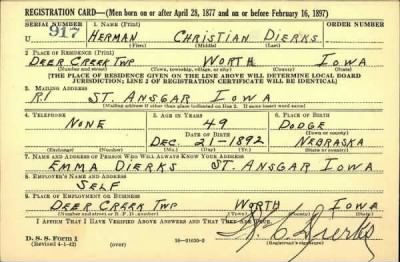 REGISTRATION CARD—(Men born on or after April 28, 1877 and on or before February 16, 1897)
SERIAL NUMBER 1. NAME (Print)
U 917 HERMAN CHRISTIAN DIERKS
(First) (Middle) (Last)
2. PLACE OF RESIDENCE (Print)
DEER CREEK TWP WORTH IOWA
(Number and street) (Town, township, village, or city) (County) (State)
[THE PLACE OF RESIDENCE GIVEN ON THE LINE ABOVE WILL DETERMINE LOCAL BOARD
JURISDICTION; LINE 2 OF REGISTRATION CERTIFICATE WILL BE IDENTICAL]
3. MAILING ADDRESS
R1 ST. ANSGAR IOWA
[Mailing address if other than place indicated on line 2. If same insert word same]
4. TELEPHONE 5. AGE IN YEARS 6. PLACE OF BIRTH
NONE 49 DODGE
DATE OF BIRTH (Town or county)
DEC. 21-1892 NEBRASKA
(Exchange) (Number) (Mo.) (Day) (Yr.) (State or country)
7. NAME AND ADDRESS OF PERSON WHO WILL ALWAYS KNOW YOUR ADDRESS
EMMA DIERKS ST. ANSGAR IOWA
8. EMPLOYER'S NAME AND ADDRESS
SELF
9. PLACE OF EMPLOYMENT OR BUSINESS
DEER CREEK TWP WORTH IOWA
(Number and street or R. F. D. number) (Town) (County) (State)
I AFFIRM THAT I HAVE VERIFIED ABOVE ANSWERS AND THAT THEY ARE TRUE.
D. S. S. Form 1
(Revised 4-1-42) (over) 16—21630-2 H. C. Dierks
(Registrant's signature)